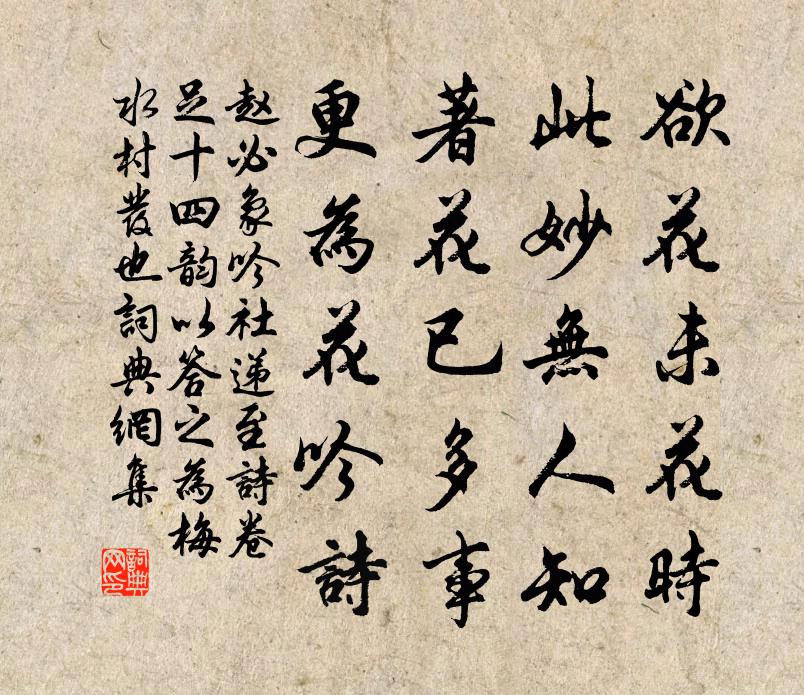 欲花未花時
此妙無人知
著花已多事
更為花吟詩
赵必象吟社递至詩卷
足十四韵以答之為梅
水村發也詞典網集
詞典網印